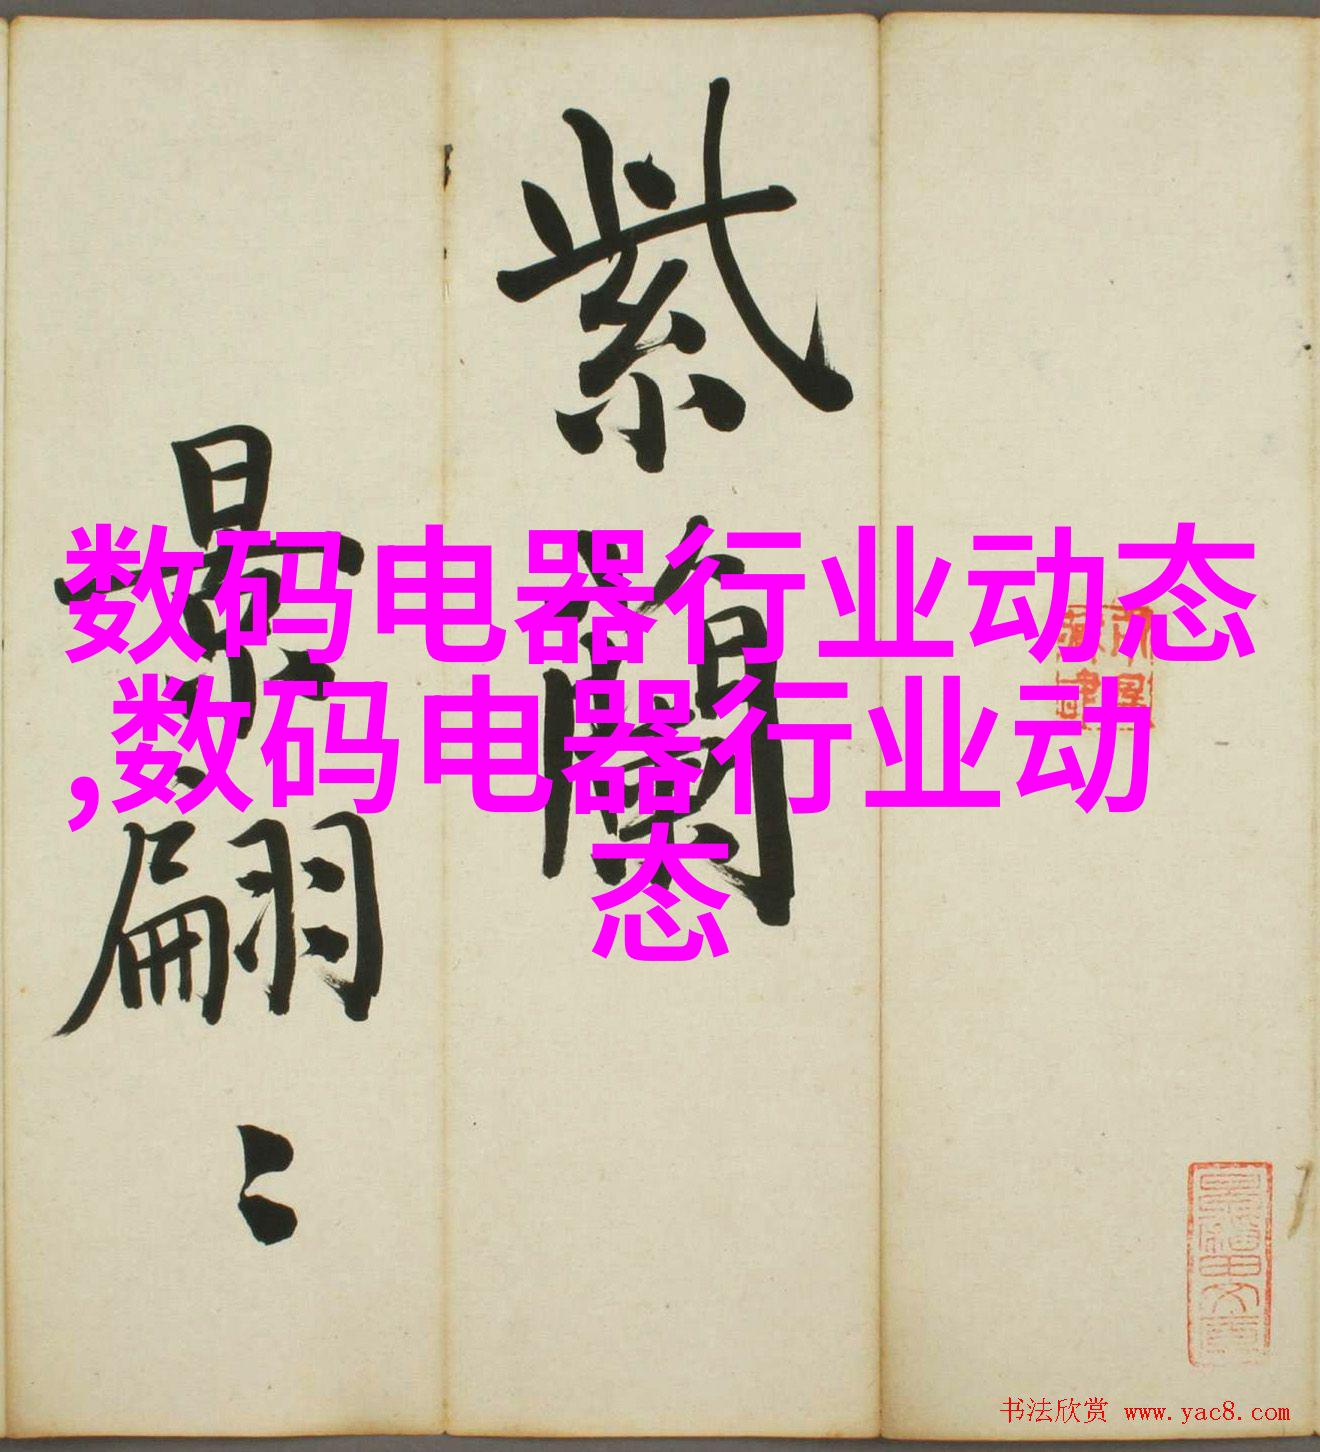 紫蘭
最翩〻
数码电器行业动态
,数码电器行业动
态
书法欣赏 www.yac8.com